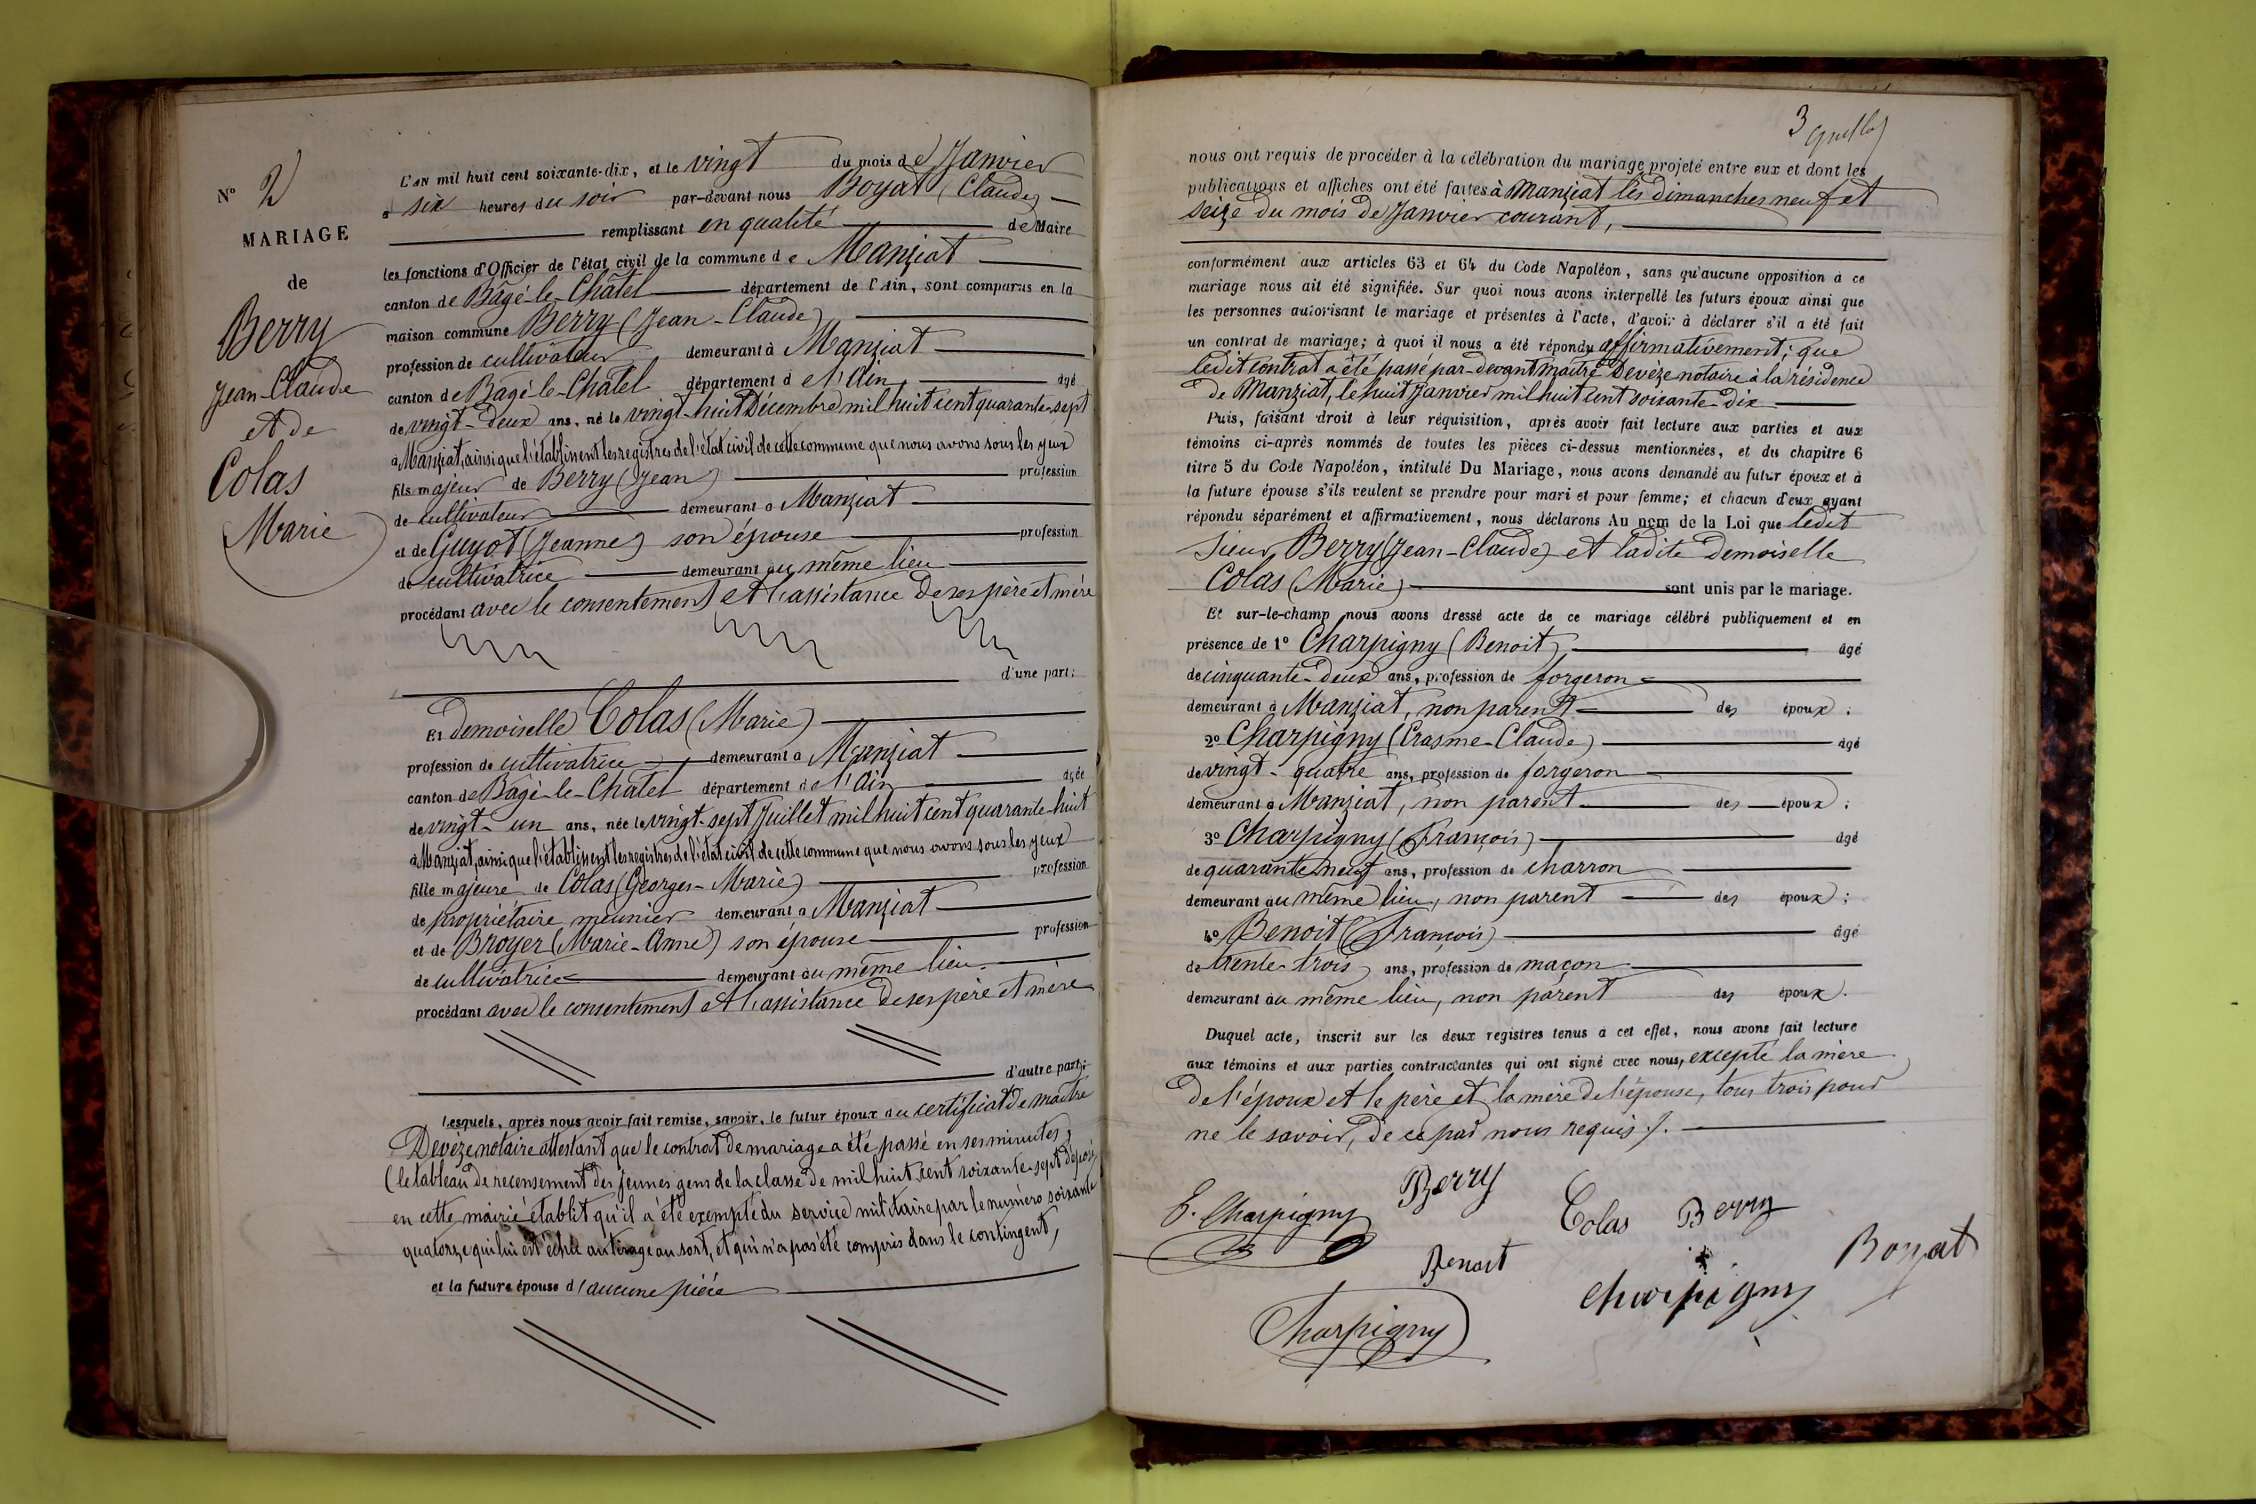 N° 2
MARIAGE
de
Berry
Jean-Claude
et de
Colas
Marie
L'AN mil huit cent soixante-dix, et le vingt du mois de Janvier
à six heures du soir par-devant nous Boyat (Claude)
remplissant en qualité de Maire
les fonctions d'Officier de l'état civil de la commune de Manziat
canton de Bâgé-le-Châtel département de l'Ain, sont comparus en la
maison commune Berry (Jean-Claude)
profession de cultivateur demeurant à Manziat
canton de Bagé-le-Chatel département de l'Ain âgé
de vingt-deux ans, né le vingt-huit Décembre mil huit cent quarante-sept
à Manziat, ainsi que l'établissent les registres de l'état civil de cette commune que nous avons sous les yeux
fils majeur de Berry (Jean) profession
de cultivateur demeurant à Manziat
et de Guyot (Jeanne) son épouse profession
de cultivatrice demeurant au même lieu
procédant avec le consentement et l'assistance de ses père et mère
d'une part;
Et demoiselle Colas (Marie)
profession de cultivatrice demeurant à Manziat
canton de Bâgé-le-Chatel département de l'Ain âgée
de vingt-un ans, née le vingt-sept Juillet mil huit cent quarante-huit
à Manziat, ainsi que l'établissent les registres de l'état civil de cette commune que nous avons sous les yeux
fille majeure de Colas (Georges-Marie) profession
de propriétaire meunier demeurant à Manziat
et de Broyer (Marie-Anne) son épouse profession
de cultivatrice demeurant au même lieu
procédant avec le consentement et l'assistance de ses père et mère
d'autre part;
Lesquels, après nous avoir fait remise, savoir, le futur époux du certificat de maître
Devèze notaire attestant que le contrat de mariage a été passé en ses minutes,
(le tableau de recensement des jeunes gens de la classe de mil huit cent soixante-sept déposé
en cette mairie établit qu'il a été exempté du service militaire par le numéro soixante
quatorze qui lui est échu au tirage au sort, et qui n'a pas été compris dans le contingent,
et la future épouse d'aucune pièce
3
nous ont requis de procéder à la célébration du mariage projeté entre eux et dont les
publications et affiches ont été faites à Manziat les dimanches neuf et
seize du mois de Janvier courant,
conformément aux articles 63 et 64 du Code Napoléon, sans qu'aucune opposition à ce
mariage nous ait été signifiée. Sur quoi nous avons interpellé les futurs époux ainsi que
les personnes autorisant le mariage et présentes à l'acte, d'avoir à déclarer s'il a été fait
un contrat de mariage; à quoi il nous a été répondu affirmativement; que
ledit contrat a été passé par-devant maître Devèze notaire à la résidence
de Manziat, le huit Janvier mil huit cent soixante-dix
Puis, faisant droit à leur réquisition, après avoir fait lecture aux parties et aux
témoins ci-après nommés de toutes les pièces ci-dessus mentionnées, et du chapitre 6
titre 5 du Code Napoléon, intitulé Du Mariage, nous avons demandé au futur époux et à
la future épouse s'ils veulent se prendre pour mari et pour femme; et chacun d'eux ayant
répondu séparément et affirmativement, nous déclarons Au nom de la Loi que ledit
Sieur Berry (Jean-Claude) et ladite Demoiselle
Colas (Marie) sont unis par le mariage.
Et sur-le-champ nous avons dressé acte de ce mariage célébré publiquement et en
présence de 1° Charpigny (Benoit) âgé
de cinquante-deux ans, profession de forgeron
demeurant à Manziat, non parent des époux;
2° Charpigny (Erasme-Claude) âgé
de vingt-quatre ans, profession de forgeron
demeurant à Manziat, non parent des époux;
3° Charpigny (François) âgé
de quarante-neuf ans, profession de charron
demeurant au même lieu, non parent des époux;
4° Benoit (François) âgé
de trente-trois ans, profession de maçon
demeurant au même lieu, non parent des époux.
Duquel acte, inscrit sur les deux registres tenus à cet effet, nous avons fait lecture
aux témoins et aux parties contractantes qui ont signé avec nous, excepté la mère
de l'époux et le père et la mère de l'épouse, tous trois pour
ne le savoir, de ce par nous requis ./.
E. Charpigny Berry Colas Berry
Benoit Charpigny Boyat
Charpigny